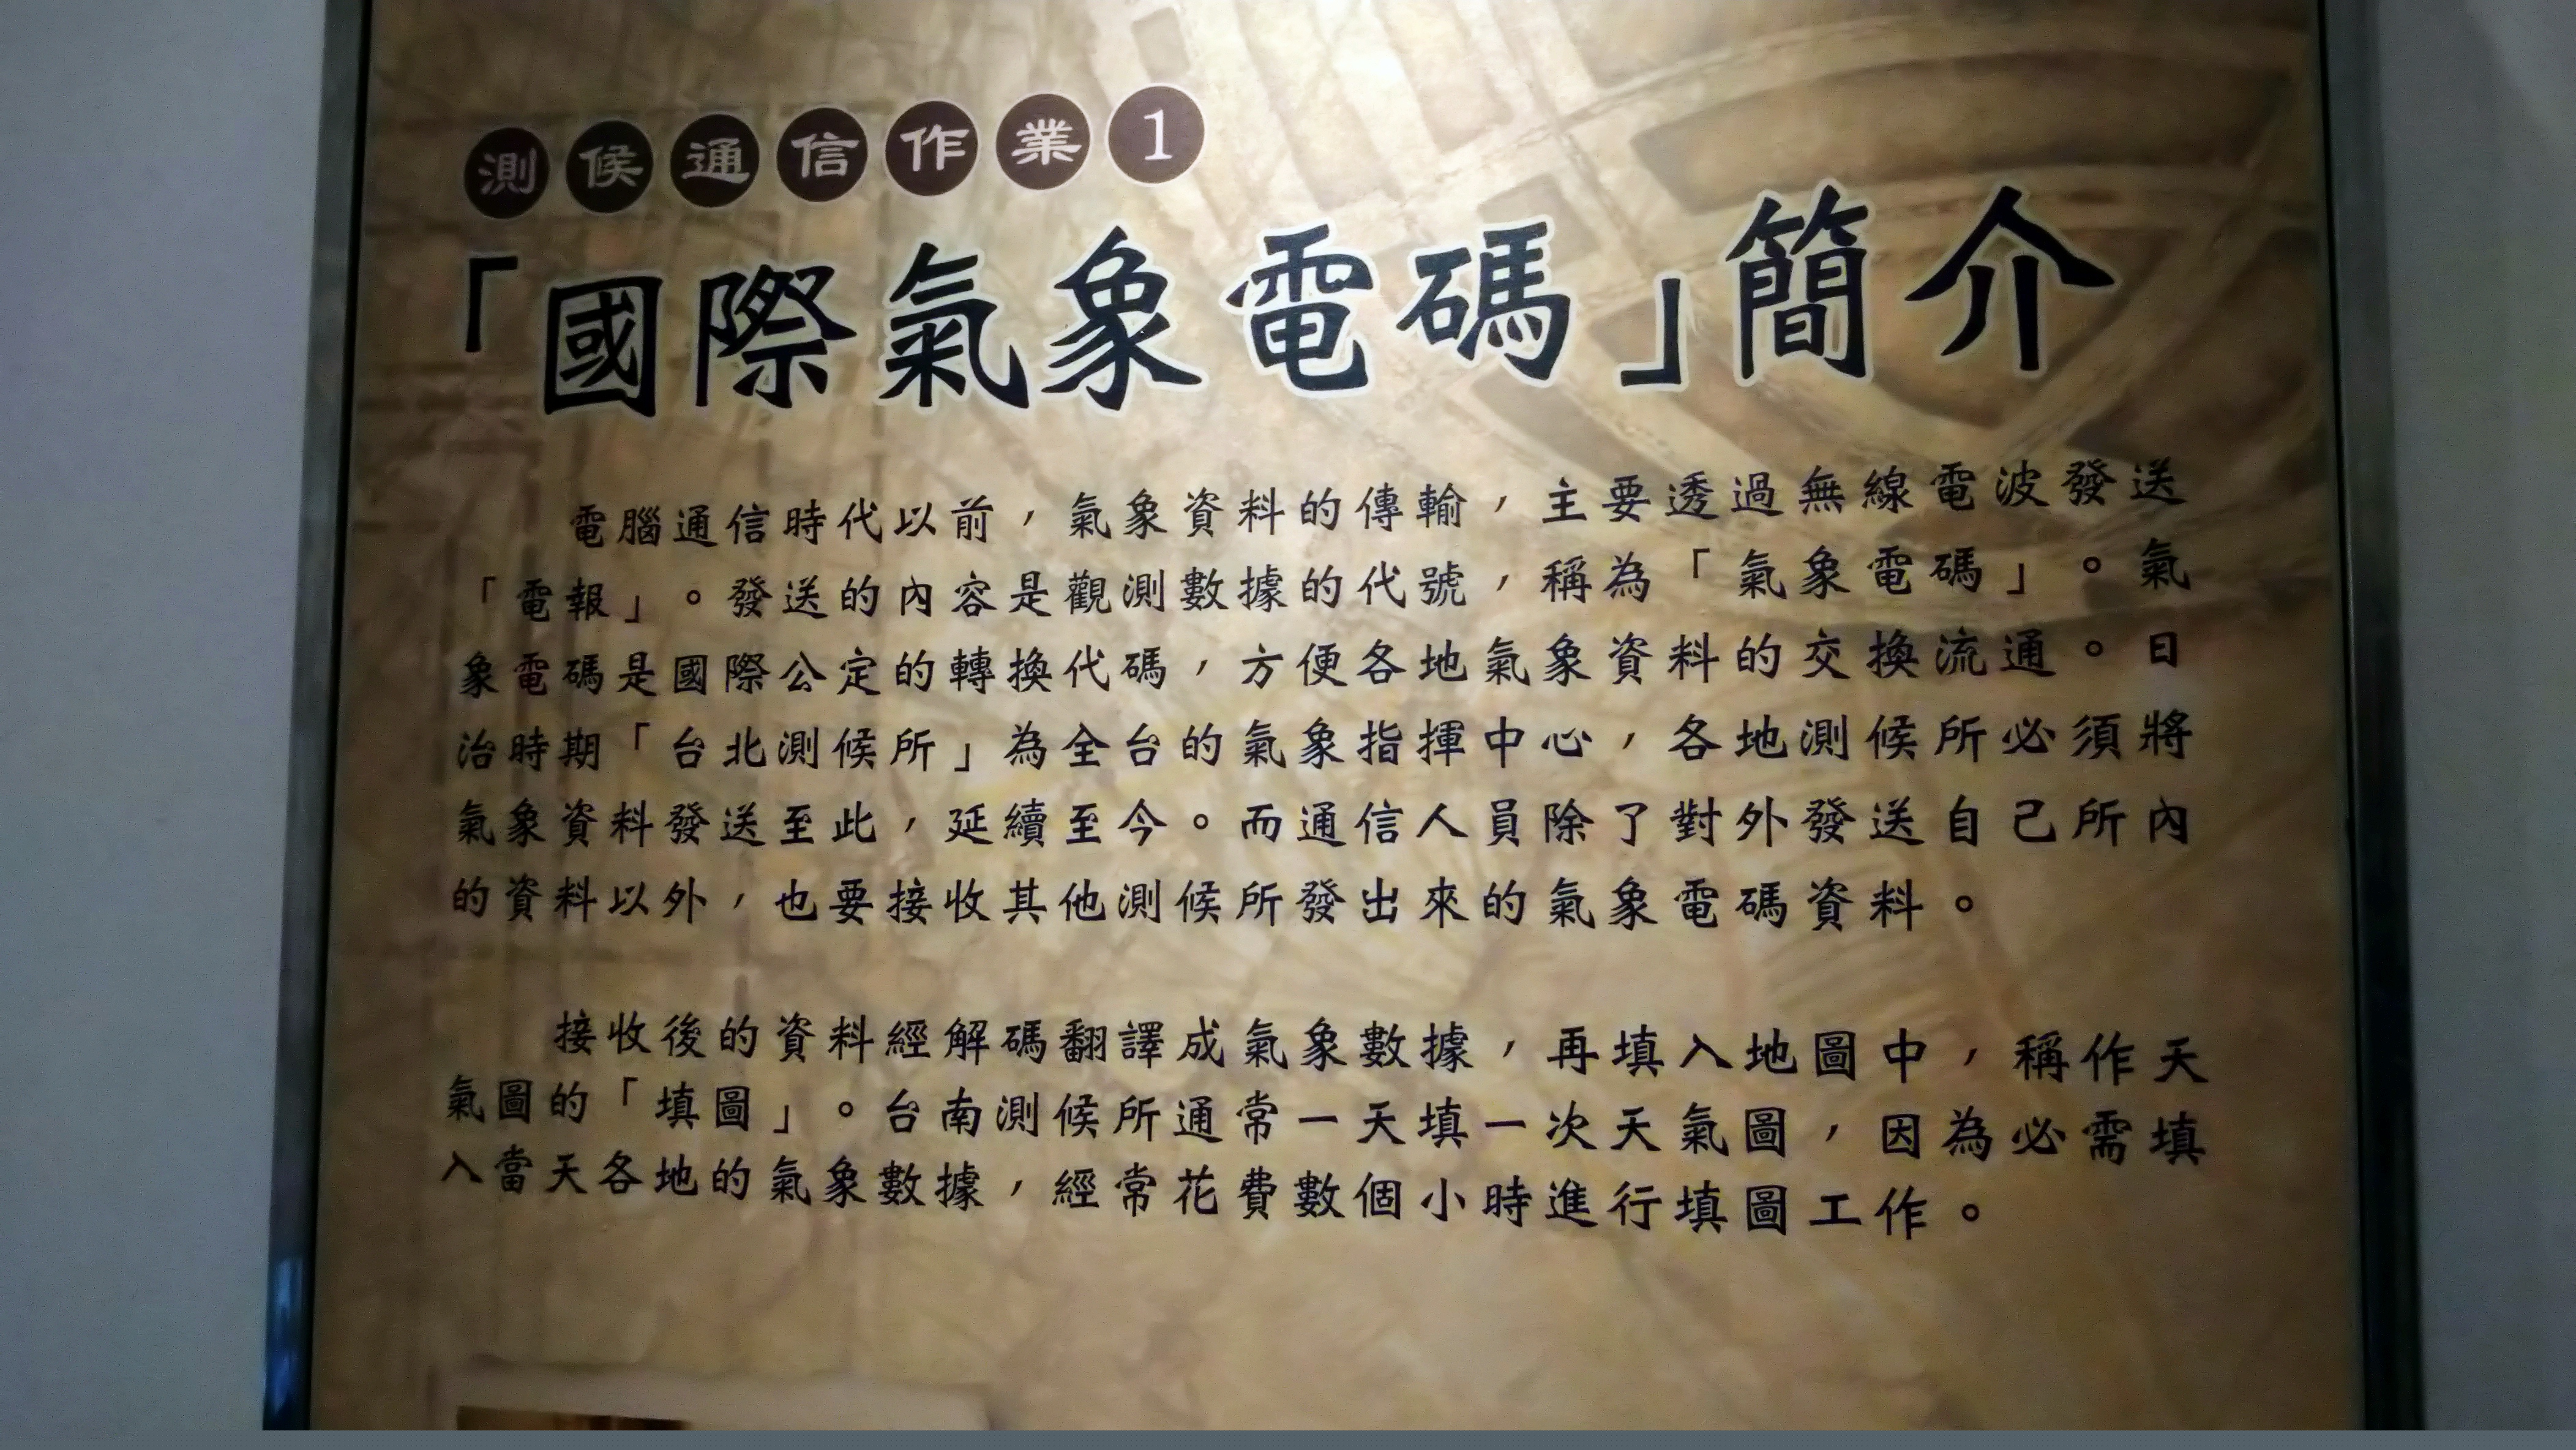 測候通信作業1
「國際氣象電碼」簡介
電腦通信時代以前，氣象資料的傳輸，主要透過無線電波發送
「電報」。發送的內容是觀測數據的代號，稱為「氣象電碼」。氣
象電碼是國際公定的轉換代碼，方便各地氣象資料的交換流通。日
治時期「台北測候所」為全台的氣象指揮中心，各地測候所必須將
氣象資料發送至此，延續至今。而通信人員除了對外發送自己所內
的資料以外，也要接收其他測候所發出來的氣象電碼資料。
接收後的資料經解碼翻譯成氣象數據，再填入地圖中，稱作天
氣圖的「填圖」。台南測候所通常一天填一次天氣圖，因為必需填
入當天各地的氣象數據，經常花費數個小時進行填圖工作。